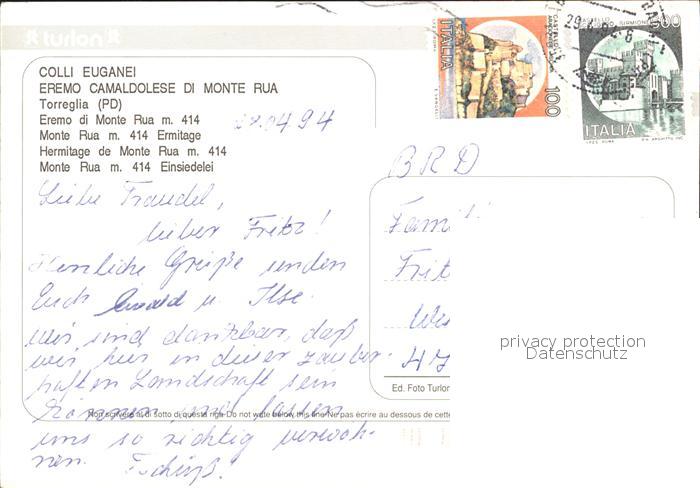 turlon
COLLI EUGANEI
EREMO CAMALDOLESE DI MONTE RUA
Torreglia (PD)
Eremo di Monte Rua m. 414
Monte Rua m. 414 Ermitage
Hermitage de Monte Rua m. 414
Monte Rua m. 414 Einsiedelei
ITALIA
100
500
ITALIA
04.94
BRD
Liebe Traudel,
lieber Fritz!
Herzliche Grüße senden
Euch Ewald u Ilse.
Wir sind dankbar, daß
wir hier in dieser zauber-
haften Landschaft sein
können und lassen
uns so richtig verwöh-
nen. Tschüß!
Fami
Frit
We
47
Ed. Foto Turlon
Non scrivere al di sotto di questa riga-Do not write below this line-Ne pas écrire au dessous de cette
privacy protection
Datenschutz